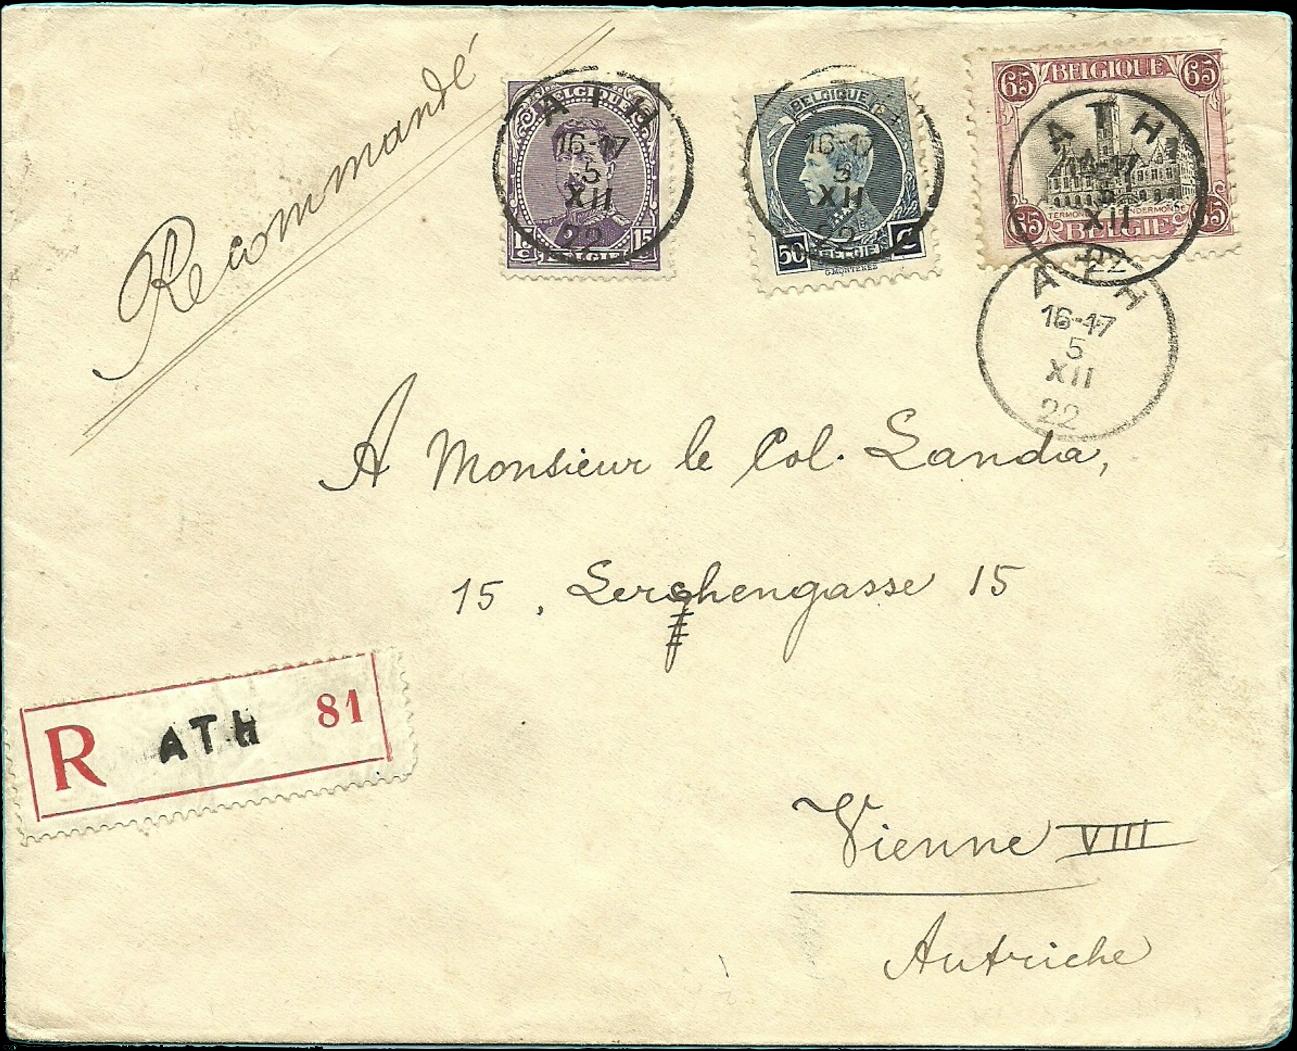 Recommandé
BELGIQUE
15 15
C
BELGIE
ATH
16-17
5
XII
22
BELGIQUE
50 C
BELGIEN
G. MONTENEZ
ATH
16-17
5
XII
22
65 BELGIQUE 65
TERMONDE DENDERMONDE
65 BELGIE 65
ATH
16-17
5
XII
22
ATH
16-17
5
XII
22
A Monsieur le Col. Landa,
15, Lerchengasse 15
R ATH 81
Vienne VIII
Autriche